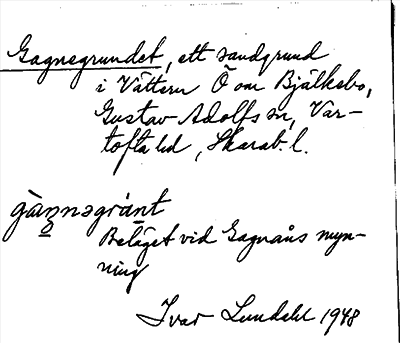 Gagnegrundet, ett sandgrund
i Vättern Ö om Bjälkebo,
Gustav Adolfs sn, Var-
tofta hd, Skarab. l.
gàŋnəgrùnt
Beläget vid Gagnåns myn-
ning
Ivar Lundahl 1948